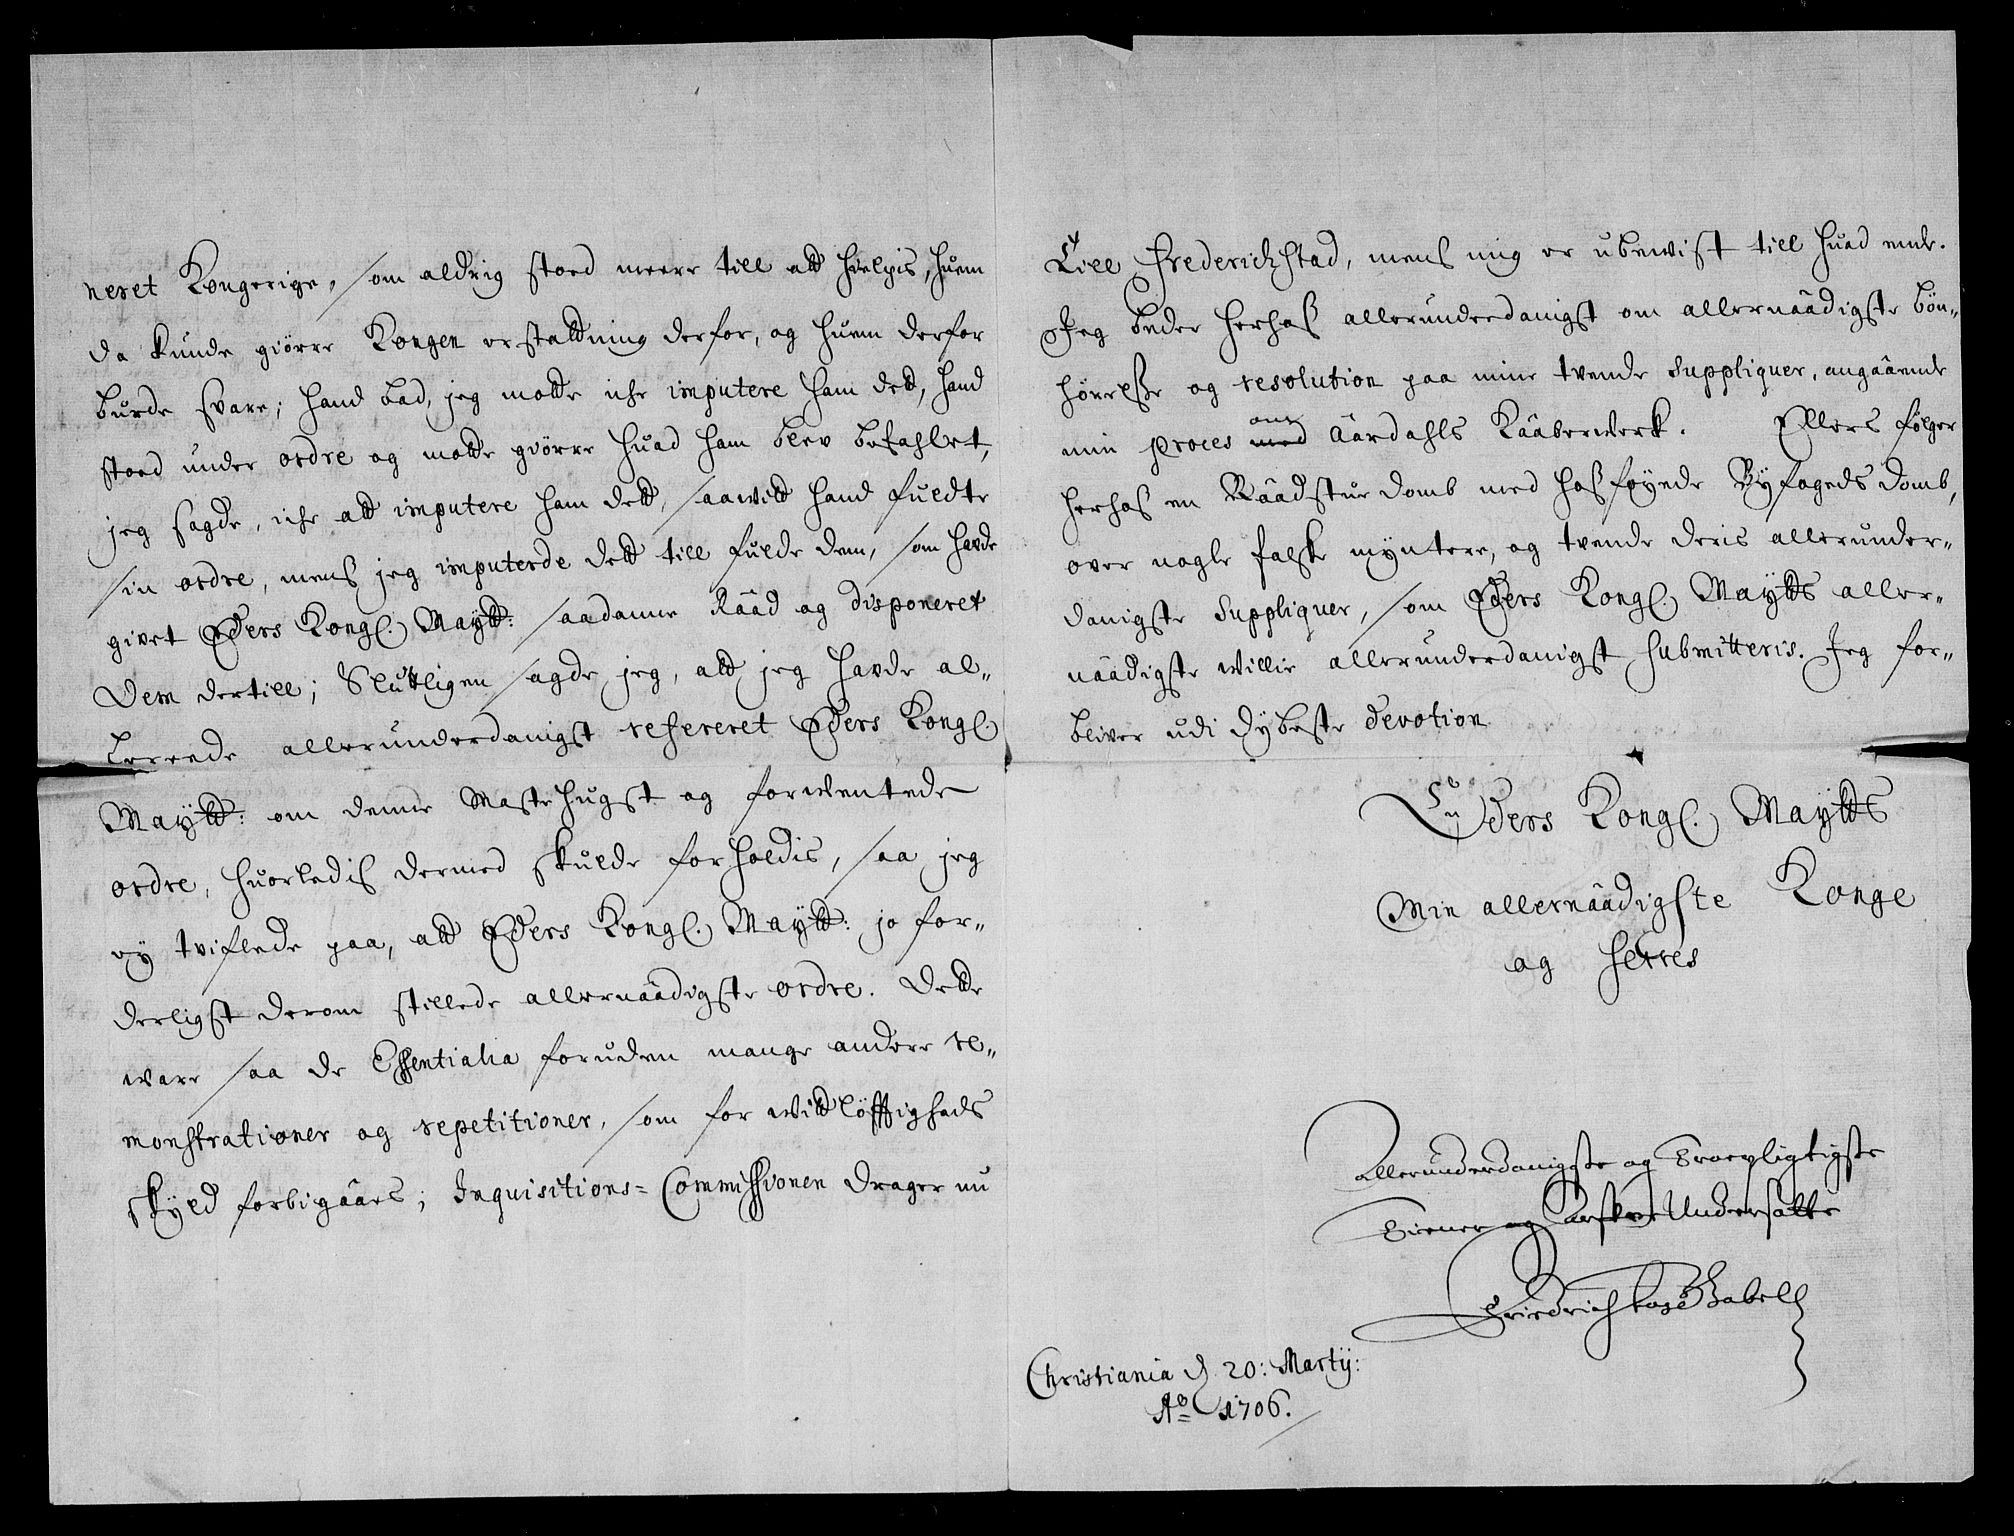 neret Kongerige, som aldrig stoed meere till att hielpis, huem
da kunde giørre Kongen erstattning derfor, og huem derfor
burde svare; hand bad, jeg motte iche imputere ham dett, hand
stoed under ordre og motte giørre huad ham blev befahlet,
jeg sagde, iche att imputere ham dett, saawitt hand fuldte
sin ordre, mens jeg imputerde dett till fulde dem, som hafde
givet Eders Kongl. Maytt: saadanne Rååd og disponeret
dem dertill; Sluttligen sagde jeg, att jeg hafde al„
lereede allerunderdanigst refereret Eders Kongl.
Maytt: om denne Mastehugst og forwentede
ordre, huorledis dermed skulde forholdis, saa jeg
ey tviflede paa, att Eders Kongl. Maytt: jo for„
derligst derom stillede allernåådigste ordre. Dette
ware saa de Essentialia foruden mange andre re„
monstrationer og repetitioner, som for wittløfftigheds
skyld forbigåårs; Inquisitions= Commissionen drager nu
till Frederichstad, mens mig er ubewist till huad ende.
Jeg beder herhos allerunderdanigst om allernåådigste bøn„
hørelse og resolution paa mine tvende Suppliquer, angåånde
min proces med om Åårdahls Kååberwerk. Ellers følger
herhos en Råådstue domb med hosføyede Byfogeds domb,
over nogle falske myntere, og tvende deris allerunder„
danigste Suppliquer, som Eders Kongl. Maytts aller„
nåådigste willie allerunderdanigst submitteris. Jeg for„
bliver udi dybeste devotion
Eders Kongl. Maytts
Min allernåådigste Konge
og Herres
Allerunderdanigste og Troepligtigste
Tiener og Undersaatte
Friedrich Gabell
Christiania d. 20: Martij:
Ao 1706.